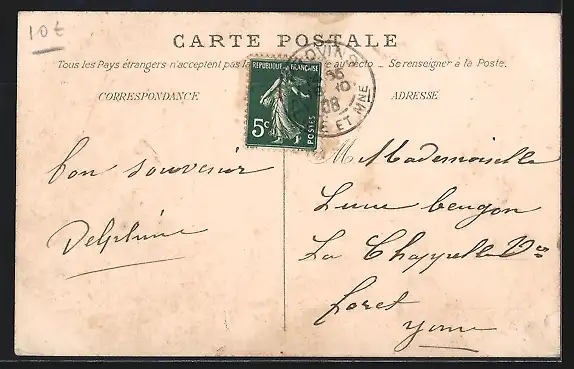 10€
CARTE POSTALE
Tous les Pays étrangers n'acceptent pas la au recto _ Se renseigner à la Poste.
CORRESPONDANCE
ADRESSE
REPUBLIQUE FRANÇAISE
5c
POSTES
08
ET MNE
bon souvenir
Delphine
M Mademoiselle
La Chappelle
foret
Yonne